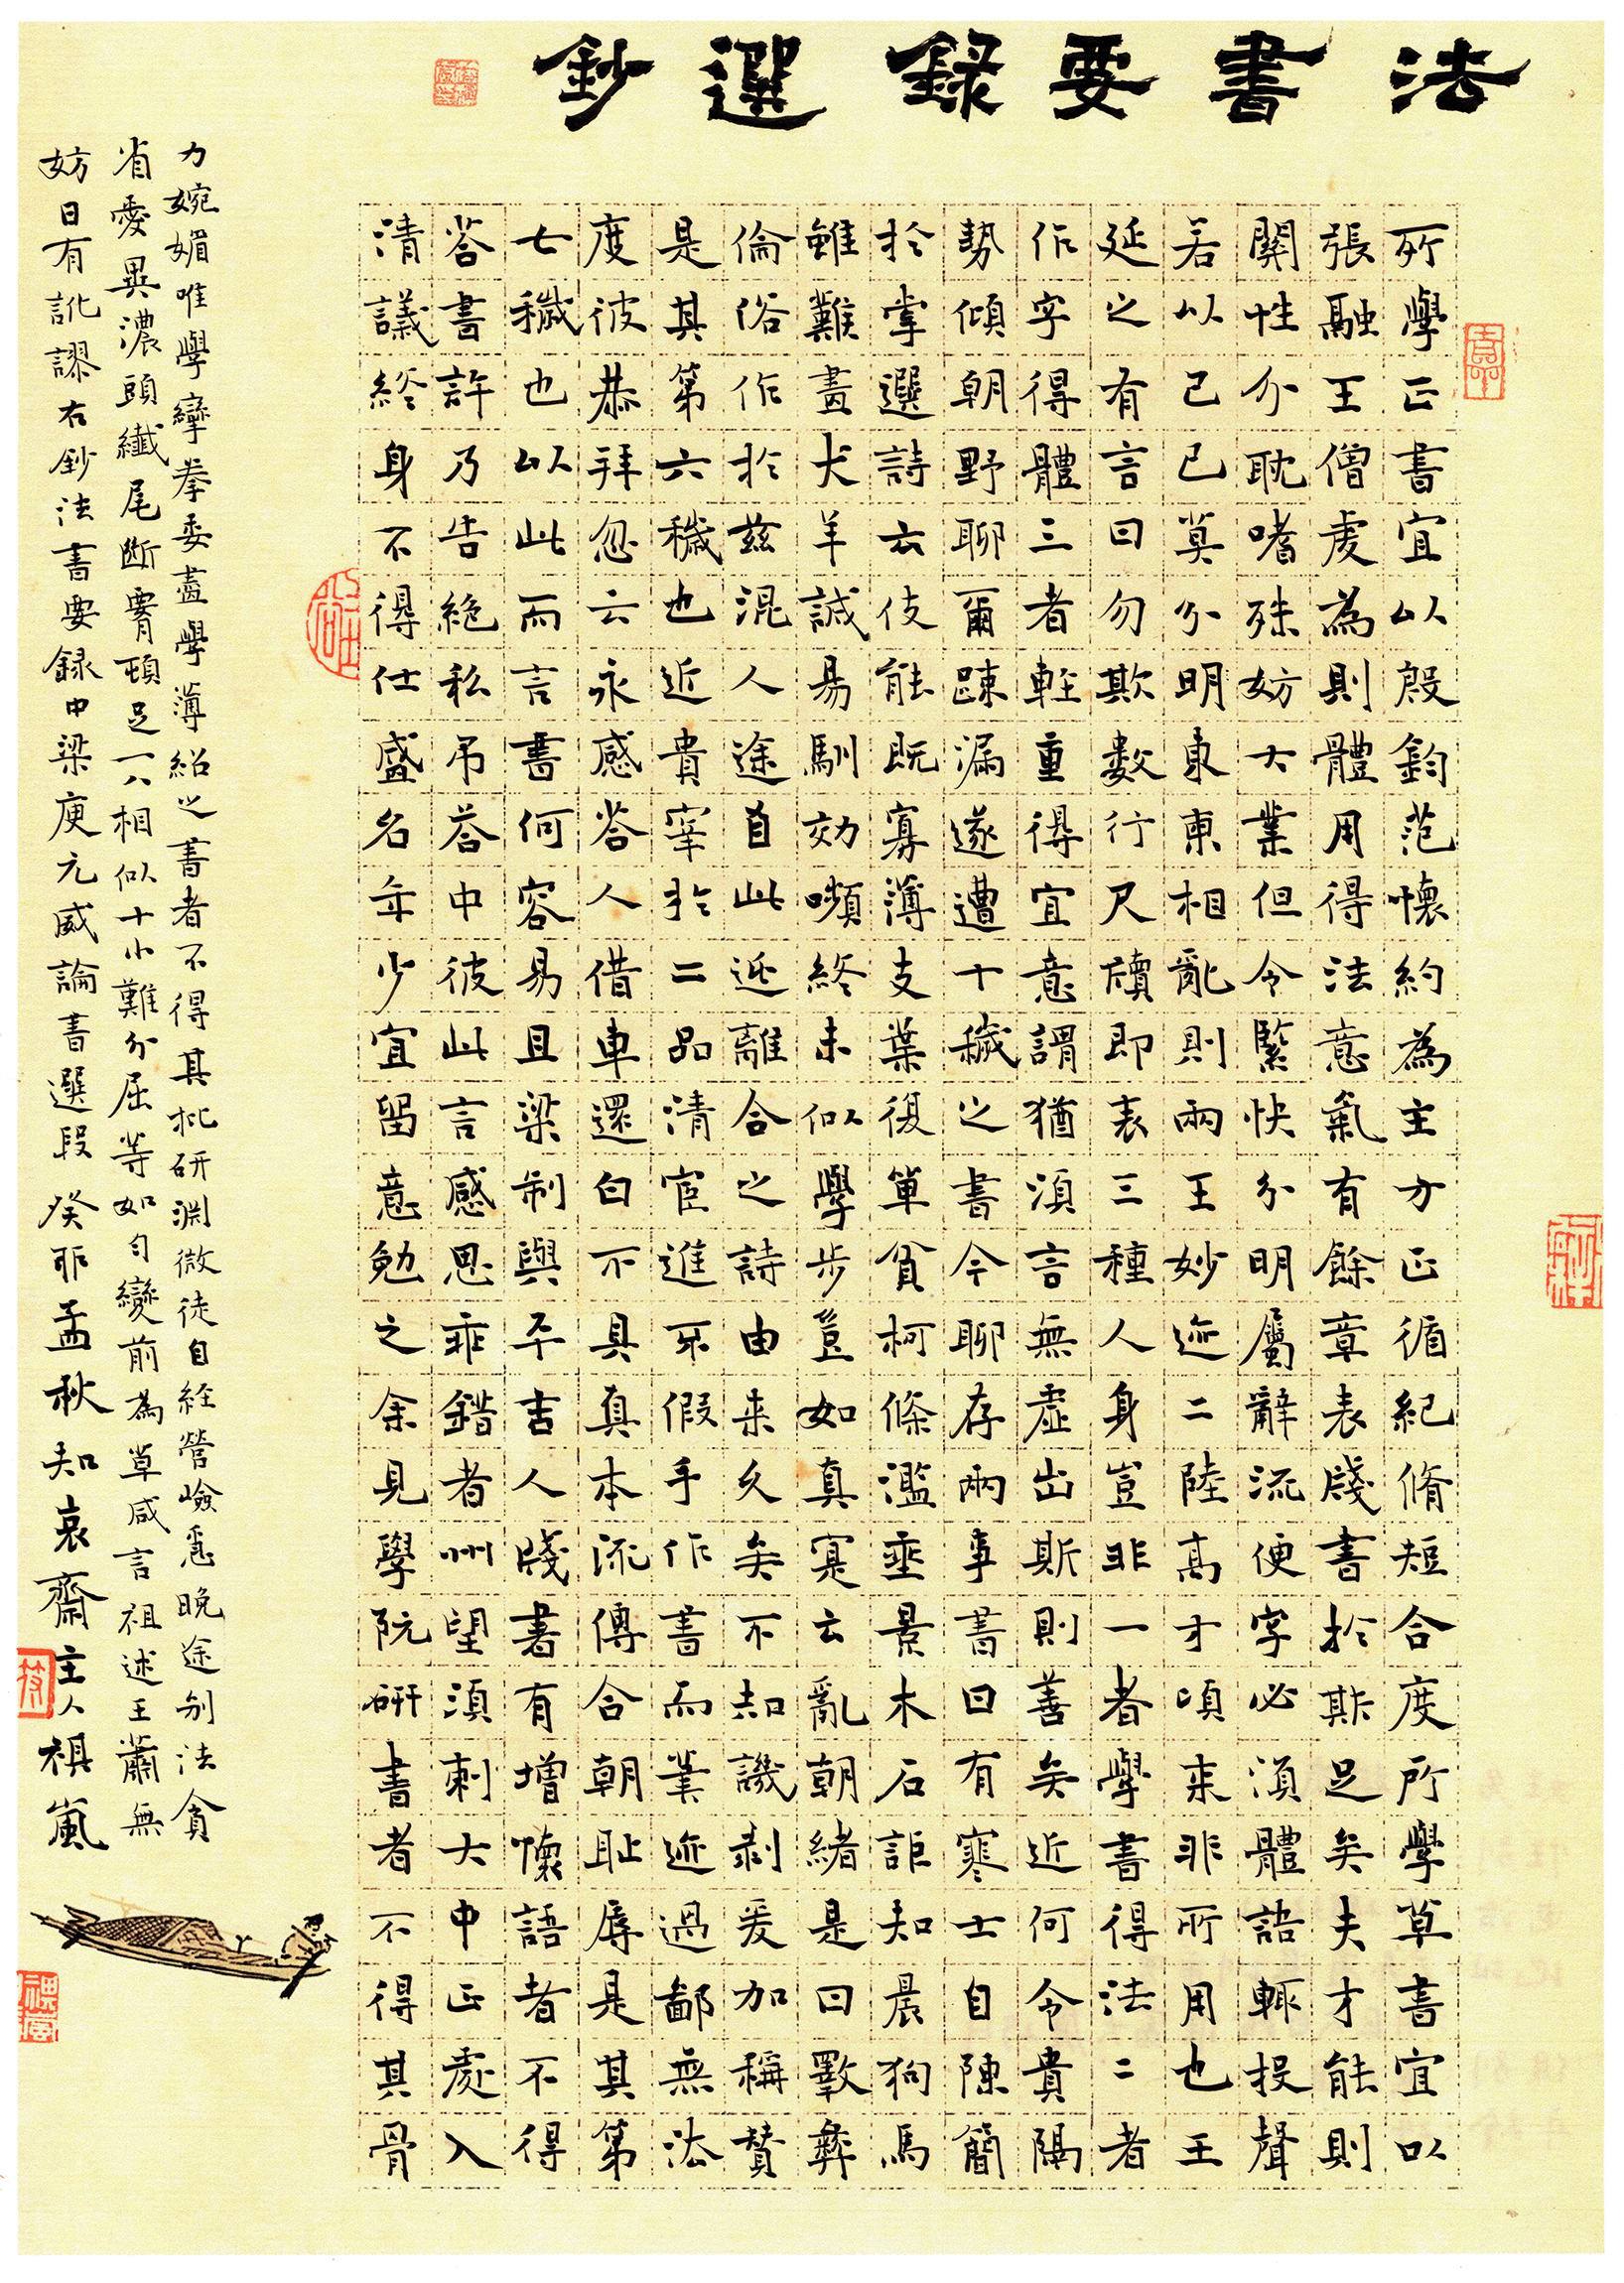 法書要録選鈔
所學正書宜以殷鈞范懷約為主方正循紀脩短合度所學草書宜以
張融王僧虔為則體用得法意氣有餘章表牋書於斯足矣夫才能則
關性分耽嗜殊妨大業但令緊快分明屬辭流便字必須體語輒投聲
若以已巳莫分明東東相亂則兩王妙迹二陸高才頃来非所用也王
延之有言曰勿欺數行尺牘即表三種人身豈非一者學書得法二者
作字得體三者輕重得宜意謂猶須言無虛出斯則善矣近何令貴隔
勢傾朝野聊爾疎漏遂遭十穢之書今聊存兩事書曰有寒士自陳簡
於掌選詩云伎能既寡薄支葉復單貧柯條濫垂景木石詎知晨狗馬
雖難畫犬羊誠易馴効嚬終未似學步豈如真寔云亂朝緒是曰斁彝
倫俗作於兹混人途自此近離合之詩由来久矣不知譏剥爰加稱贊
是其第六穢也近貴宰於二品清宦進不假手作書而筆迹過鄙無法
度彼恭拜忽云永感答人借車還白不具真本流傳合朝恥辱是其第
七穢也以此而言書何容易且梁制與平吉人牋書有增懷語者不得
答書許乃告絕私吊答中彼此言感思乖錯者州望須刺大中正處入
清議終身不得仕盛名年少宜留意勉之余見學阮研書者不得其骨
力婉媚唯學攣拳委盡學薄紹之書者不得其批研淵微徒自經營嶮急晚途别法貪
省愛異濃頭纖尾斷腰頓足一八相似十小難分屈等如勻變前為草咸言祖述王蕭無
妨日有訛謬右鈔法書要録中梁庾元威論書選段 癸卯孟秋知哀齋主人祺嵐